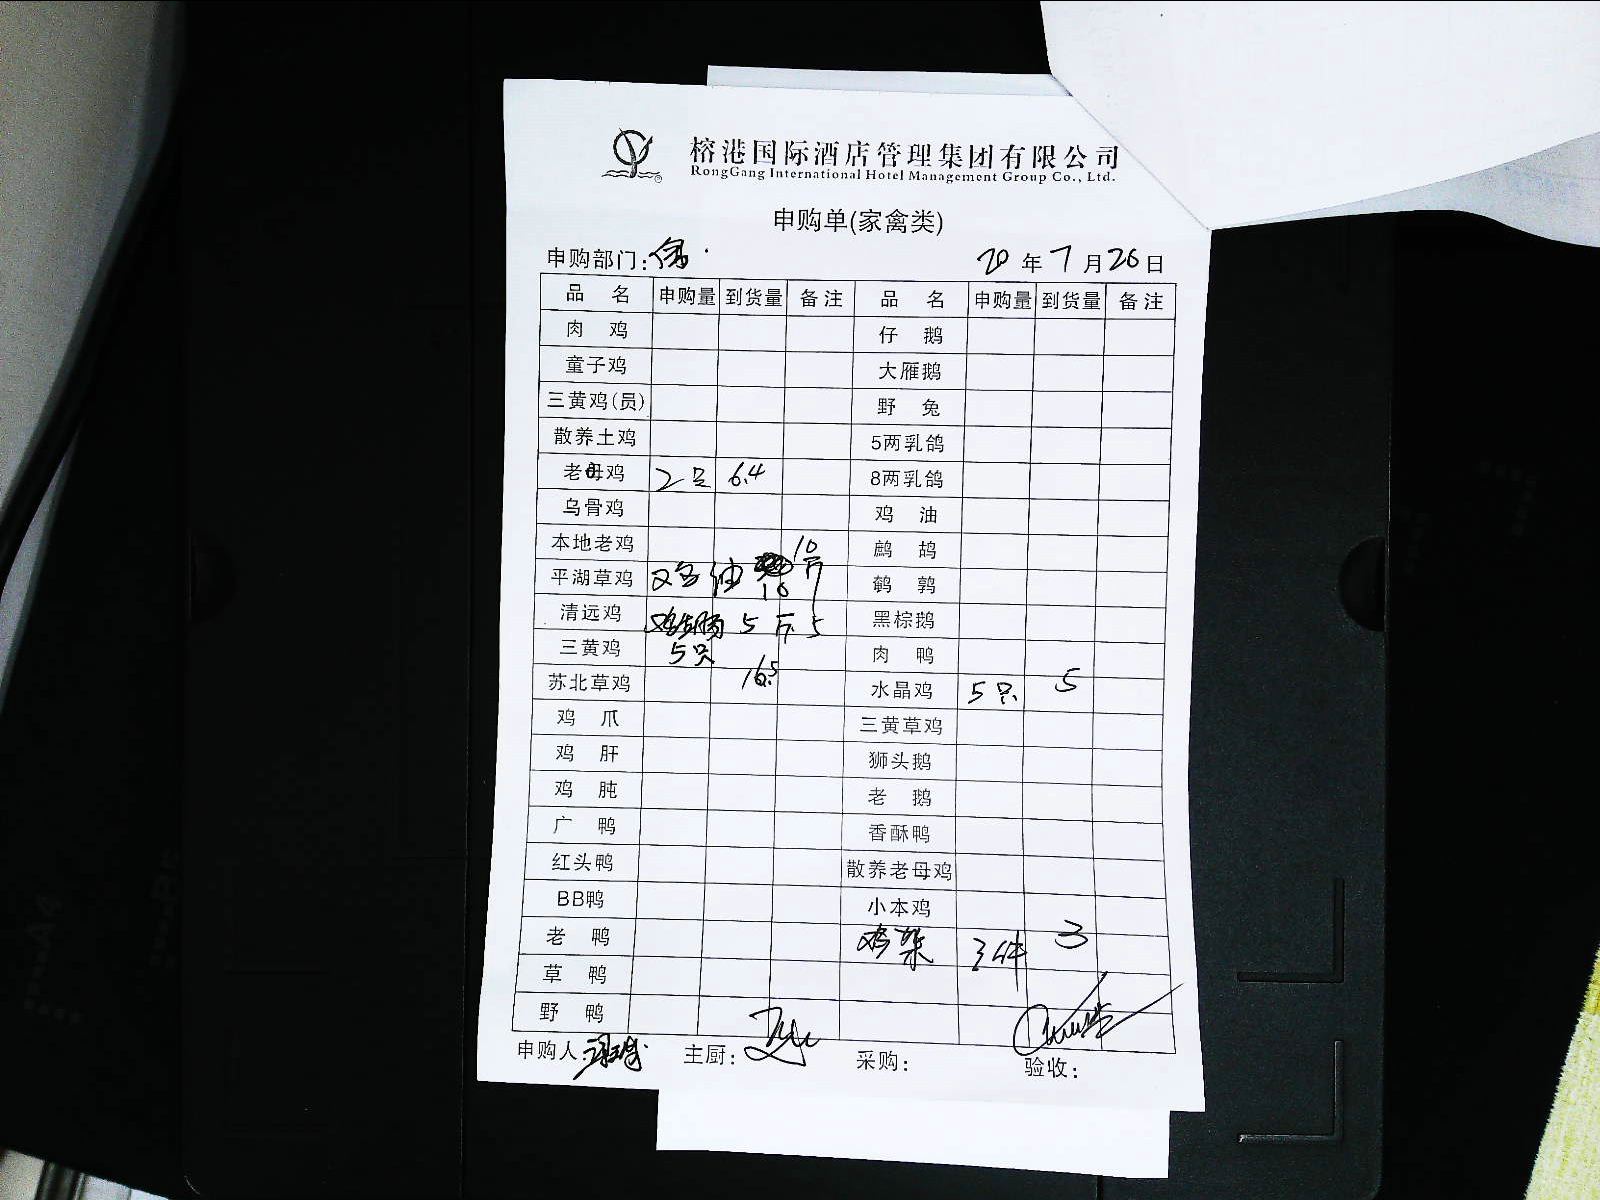 榕港国际酒店管理集团有限公司
RongGang International Hotel Management Group Co., Ltd.
申购单(家禽类)
申购部门: 20 年 7 月 26 日
品 名 申购量 到货量 备注 品 名 申购量 到货量 备注
肉 鸡 仔 鹅
童子鸡 大雁鹅
三黄鸡(员) 野 兔
散养土鸡 5两乳鸽
老母鸡 2只 6.4 8两乳鸽
乌骨鸡 鸡 油
本地老鸡 10 鹧 鸪
平湖草鸡 鸡油 10 斤 鹌 鹑
清远鸡 5斤 5 黑棕鹅
三黄鸡 5只 肉 鸭
苏北草鸡 16.5 水晶鸡 5只 5
鸡 爪 三黄草鸡
鸡 肝 狮头鹅
鸡 肫 老 鹅
广 鸭 香酥鸭
红头鸭 散养老母鸡
BB鸭 小本鸡
老 鸭 鸡架 3件 3
草 鸭
野 鸭
申购人: 主厨: 采购: 验收: